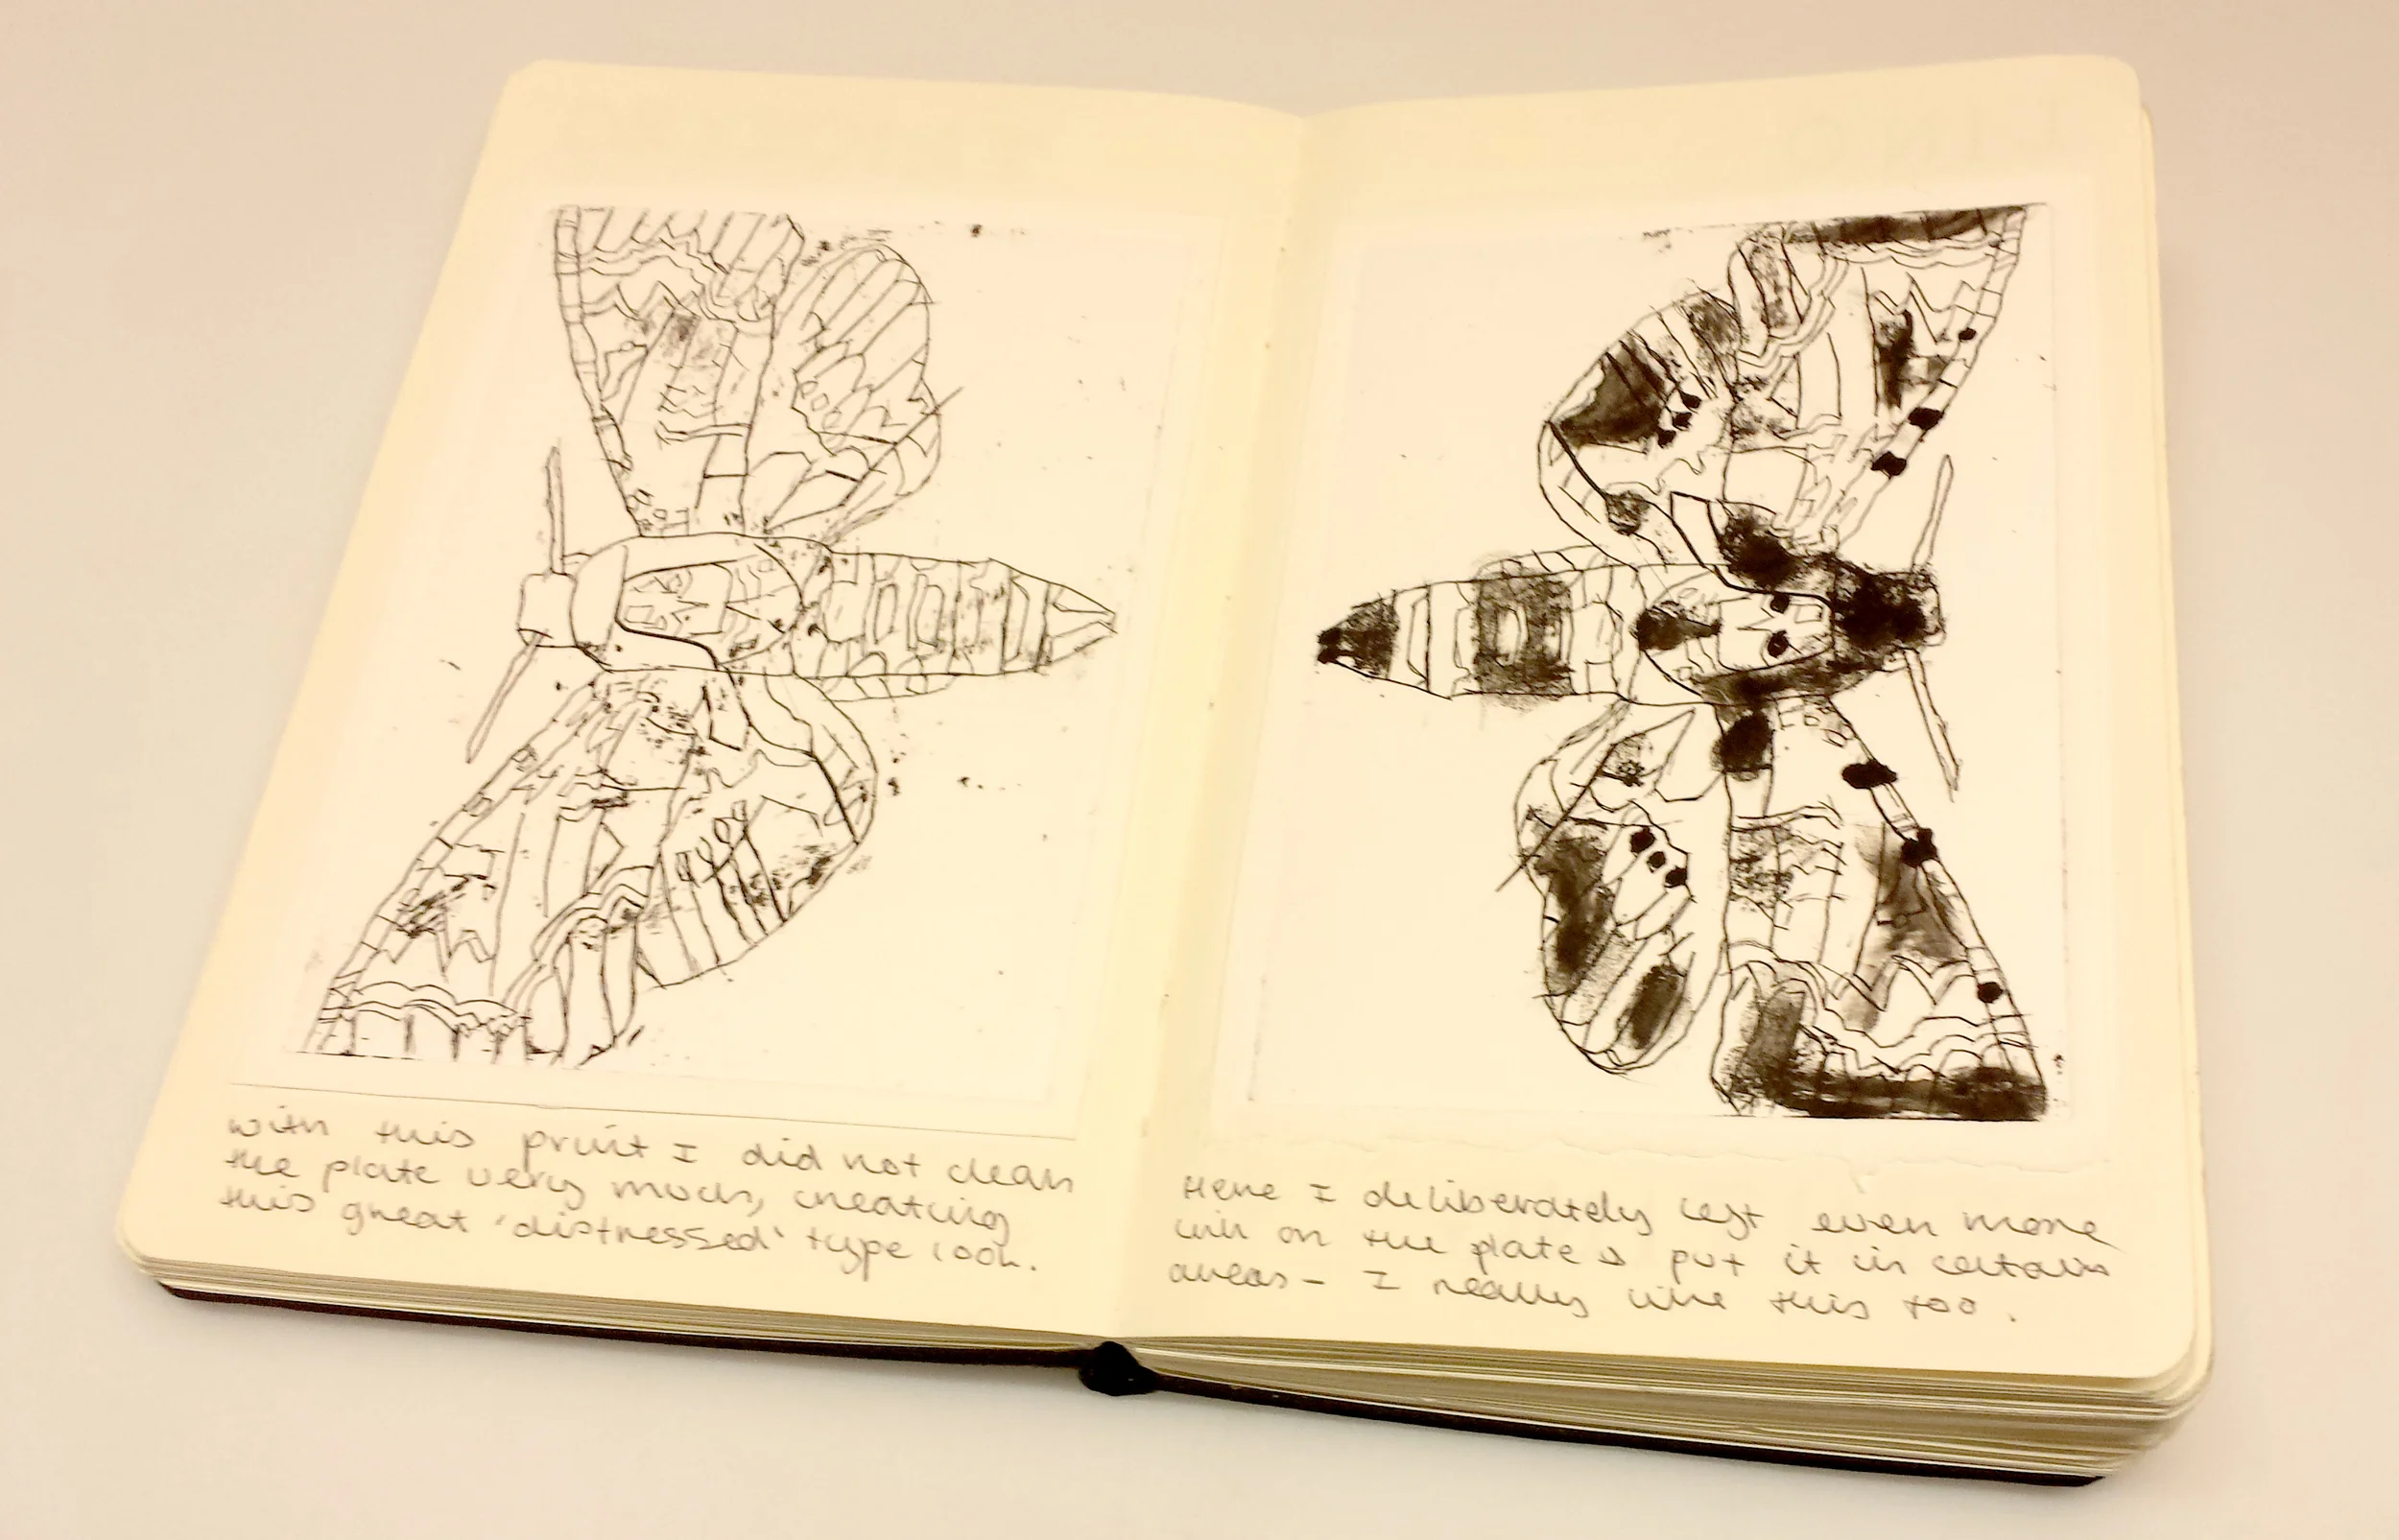 with this print I did not clean
the plate very much, creating
this great 'distressed' type look.
Here I deliberately left even more
ink on the plate & put it in certain
areas - I really like this too.